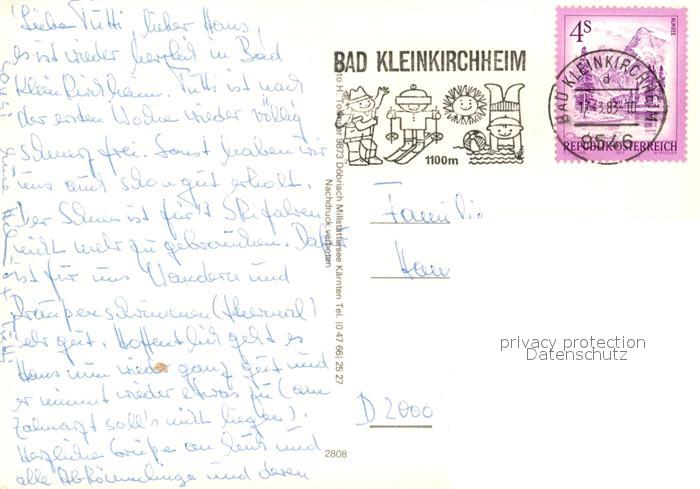 Liebe Tutti, lieber Hans,
es ist wieder herrlich in Bad
Kleinkirchheim. Tutti ist nach
der ersten Woche wieder völlig
schmerzfrei. Sonst haben wir
uns auch schon gut erholt.
Der Schnee ist für's Skifahren
nicht mehr zu gebrauchen. Dafür
ist für uns Wandern und
schwimmen (Thermal)
sehr gut. Hoffentlich geht es
Hans nun wieder ganz gut und
er nimmt wieder etwas zu (am
Zahnarzt soll's nicht liegen).
Herzliche Grüße an Euch und
alle Abkömmlinge und deren
Nachdruck verboten
9873 Döbriach Millstättersee Kärnten Tel. (0 47 66) 25 27
2808
BAD KLEINKIRCHHEIM
1100m
4S
ALMSEE
REPUBLIK ÖSTERREICH
BAD KLEINKIRCHHEIM
d
9546
Familie
Han
privacy protection
Datenschutz
D 2000